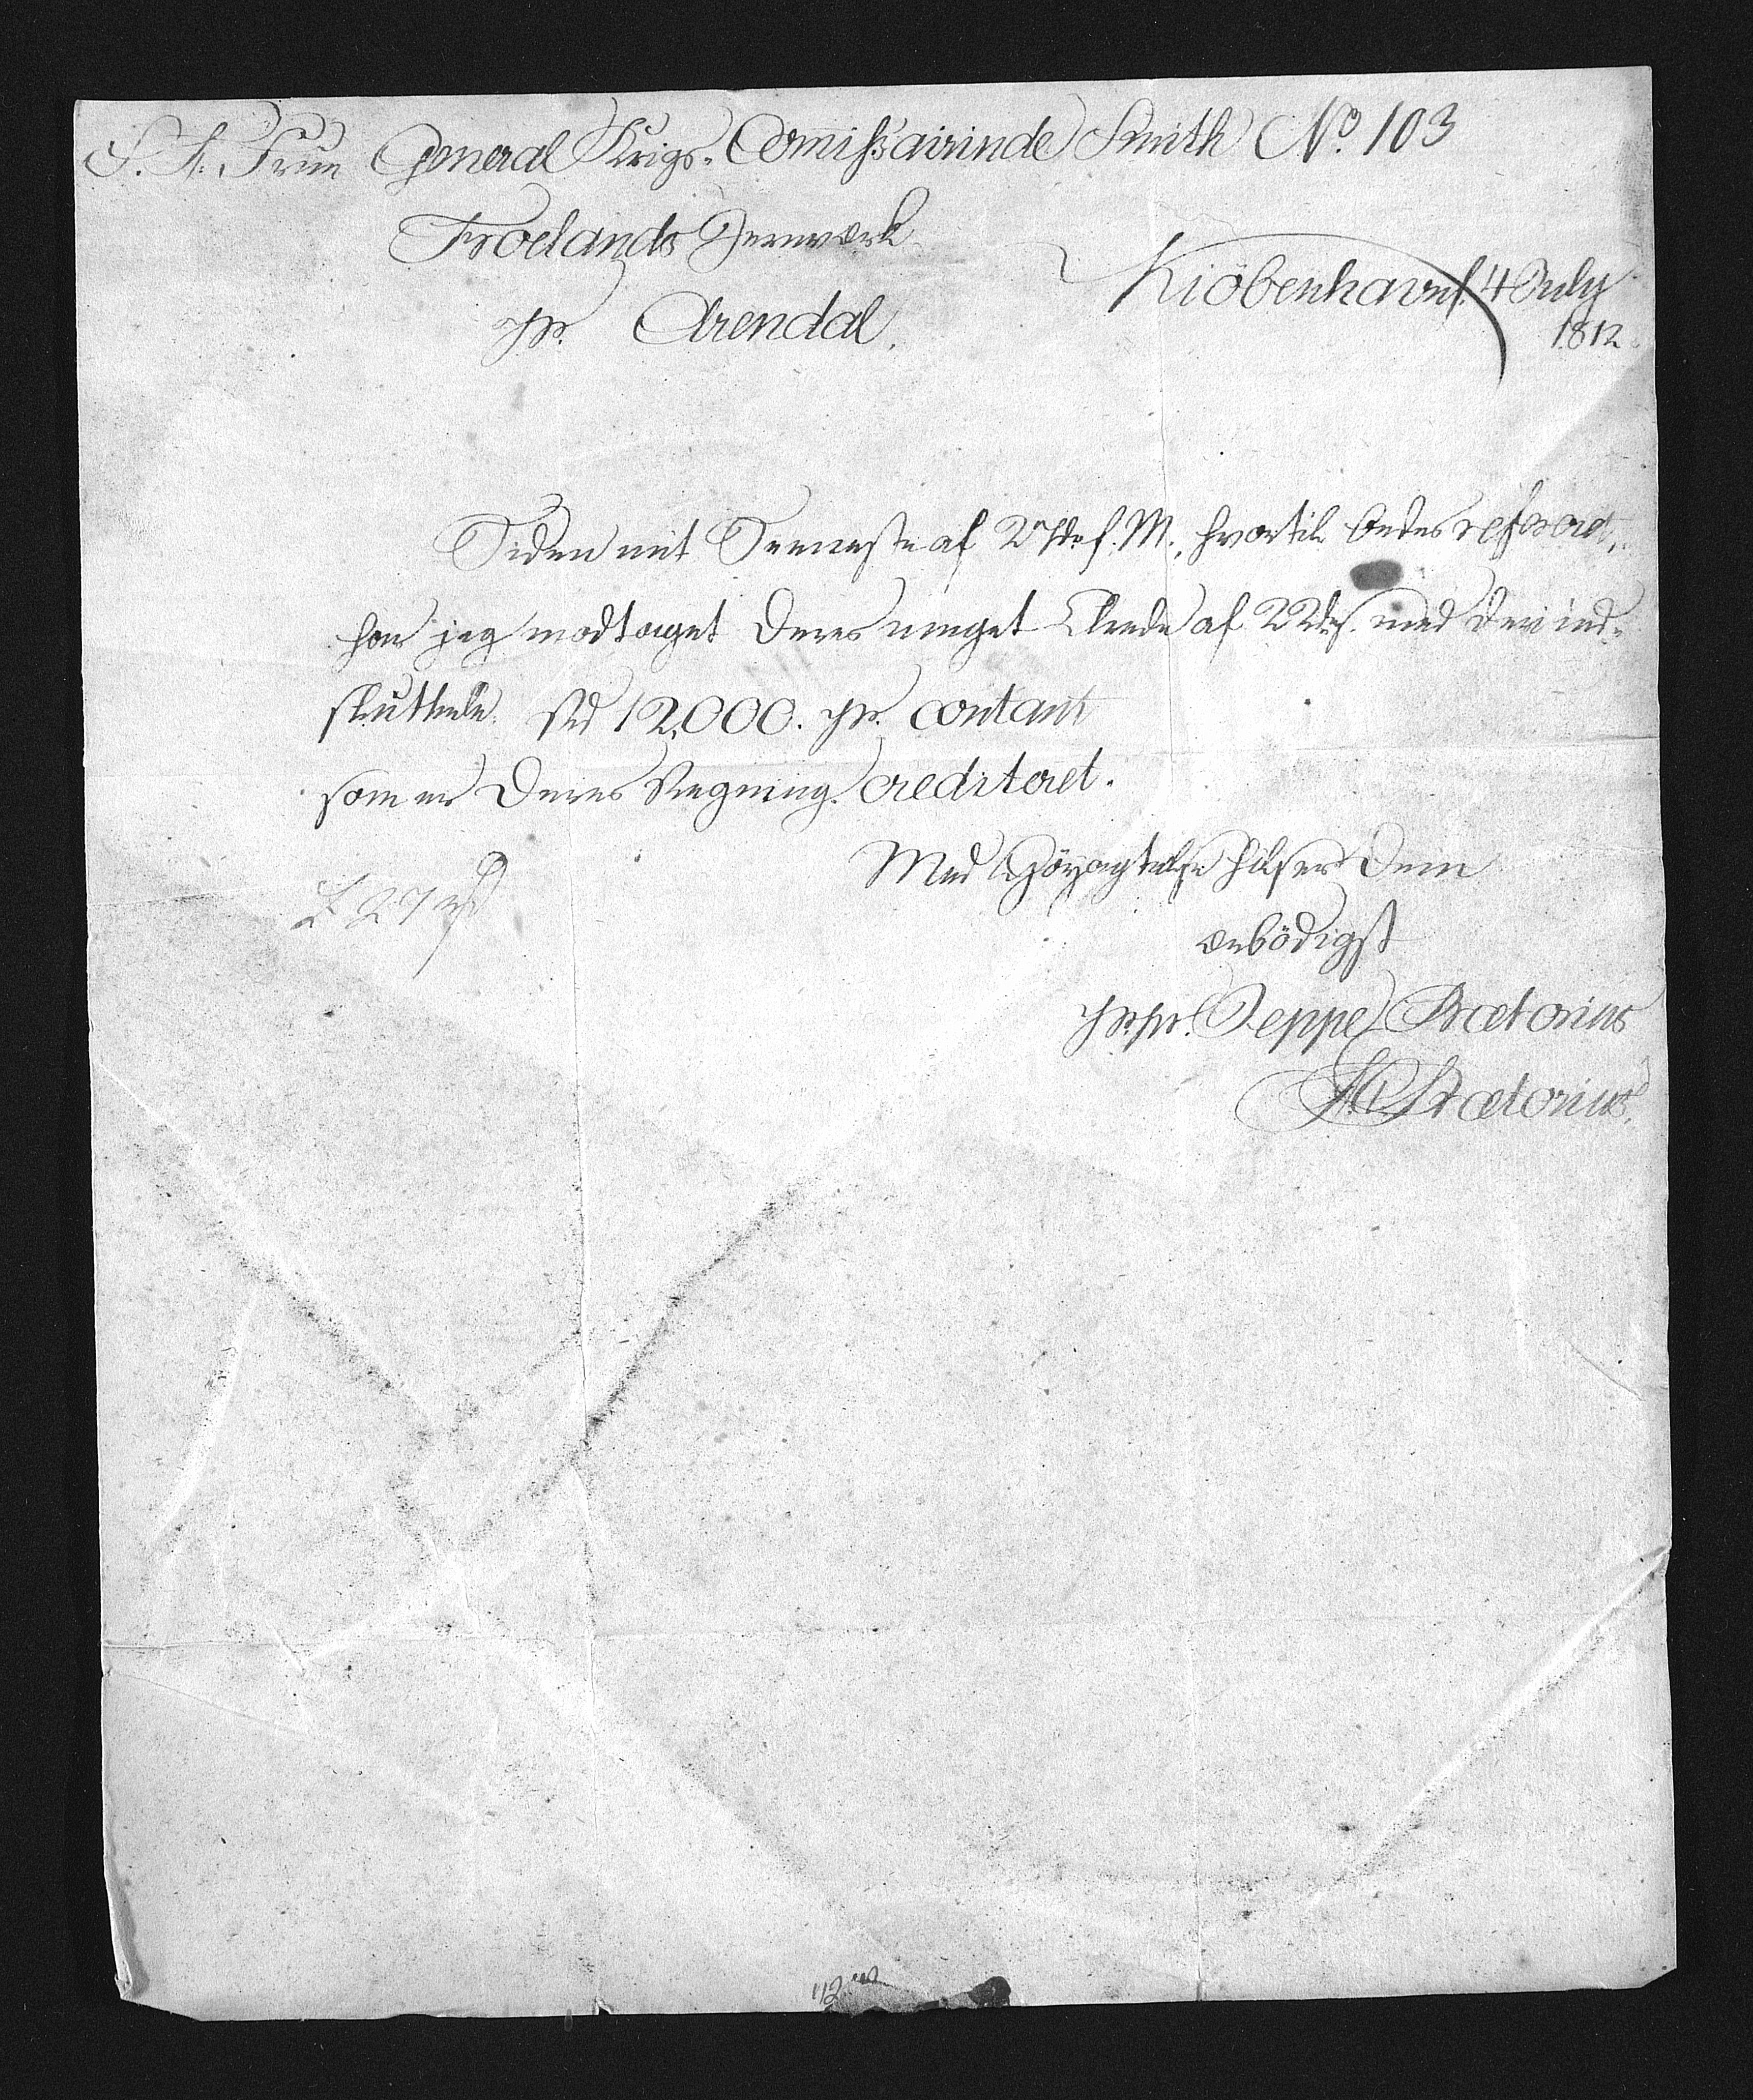 S. T. Frue General Krigs-Comissairinde Smith No. 103
Froelands Jernværk
pr. Arendal.
Kiöbenhavn d. 4 July
1812.
Siden mit Seneste af 27de f. M., hvortil bedes refereret,
har jeg modtaget Deres meget Ærede af 22 ds. med deri ind-
sluttede rd 12,000. pr. contant
som er Deres Regning crediteret.
Med Höyagtelse hilser Dem
ærbödigst
pr. pr. Jeppe Prætorius
Prætorius.